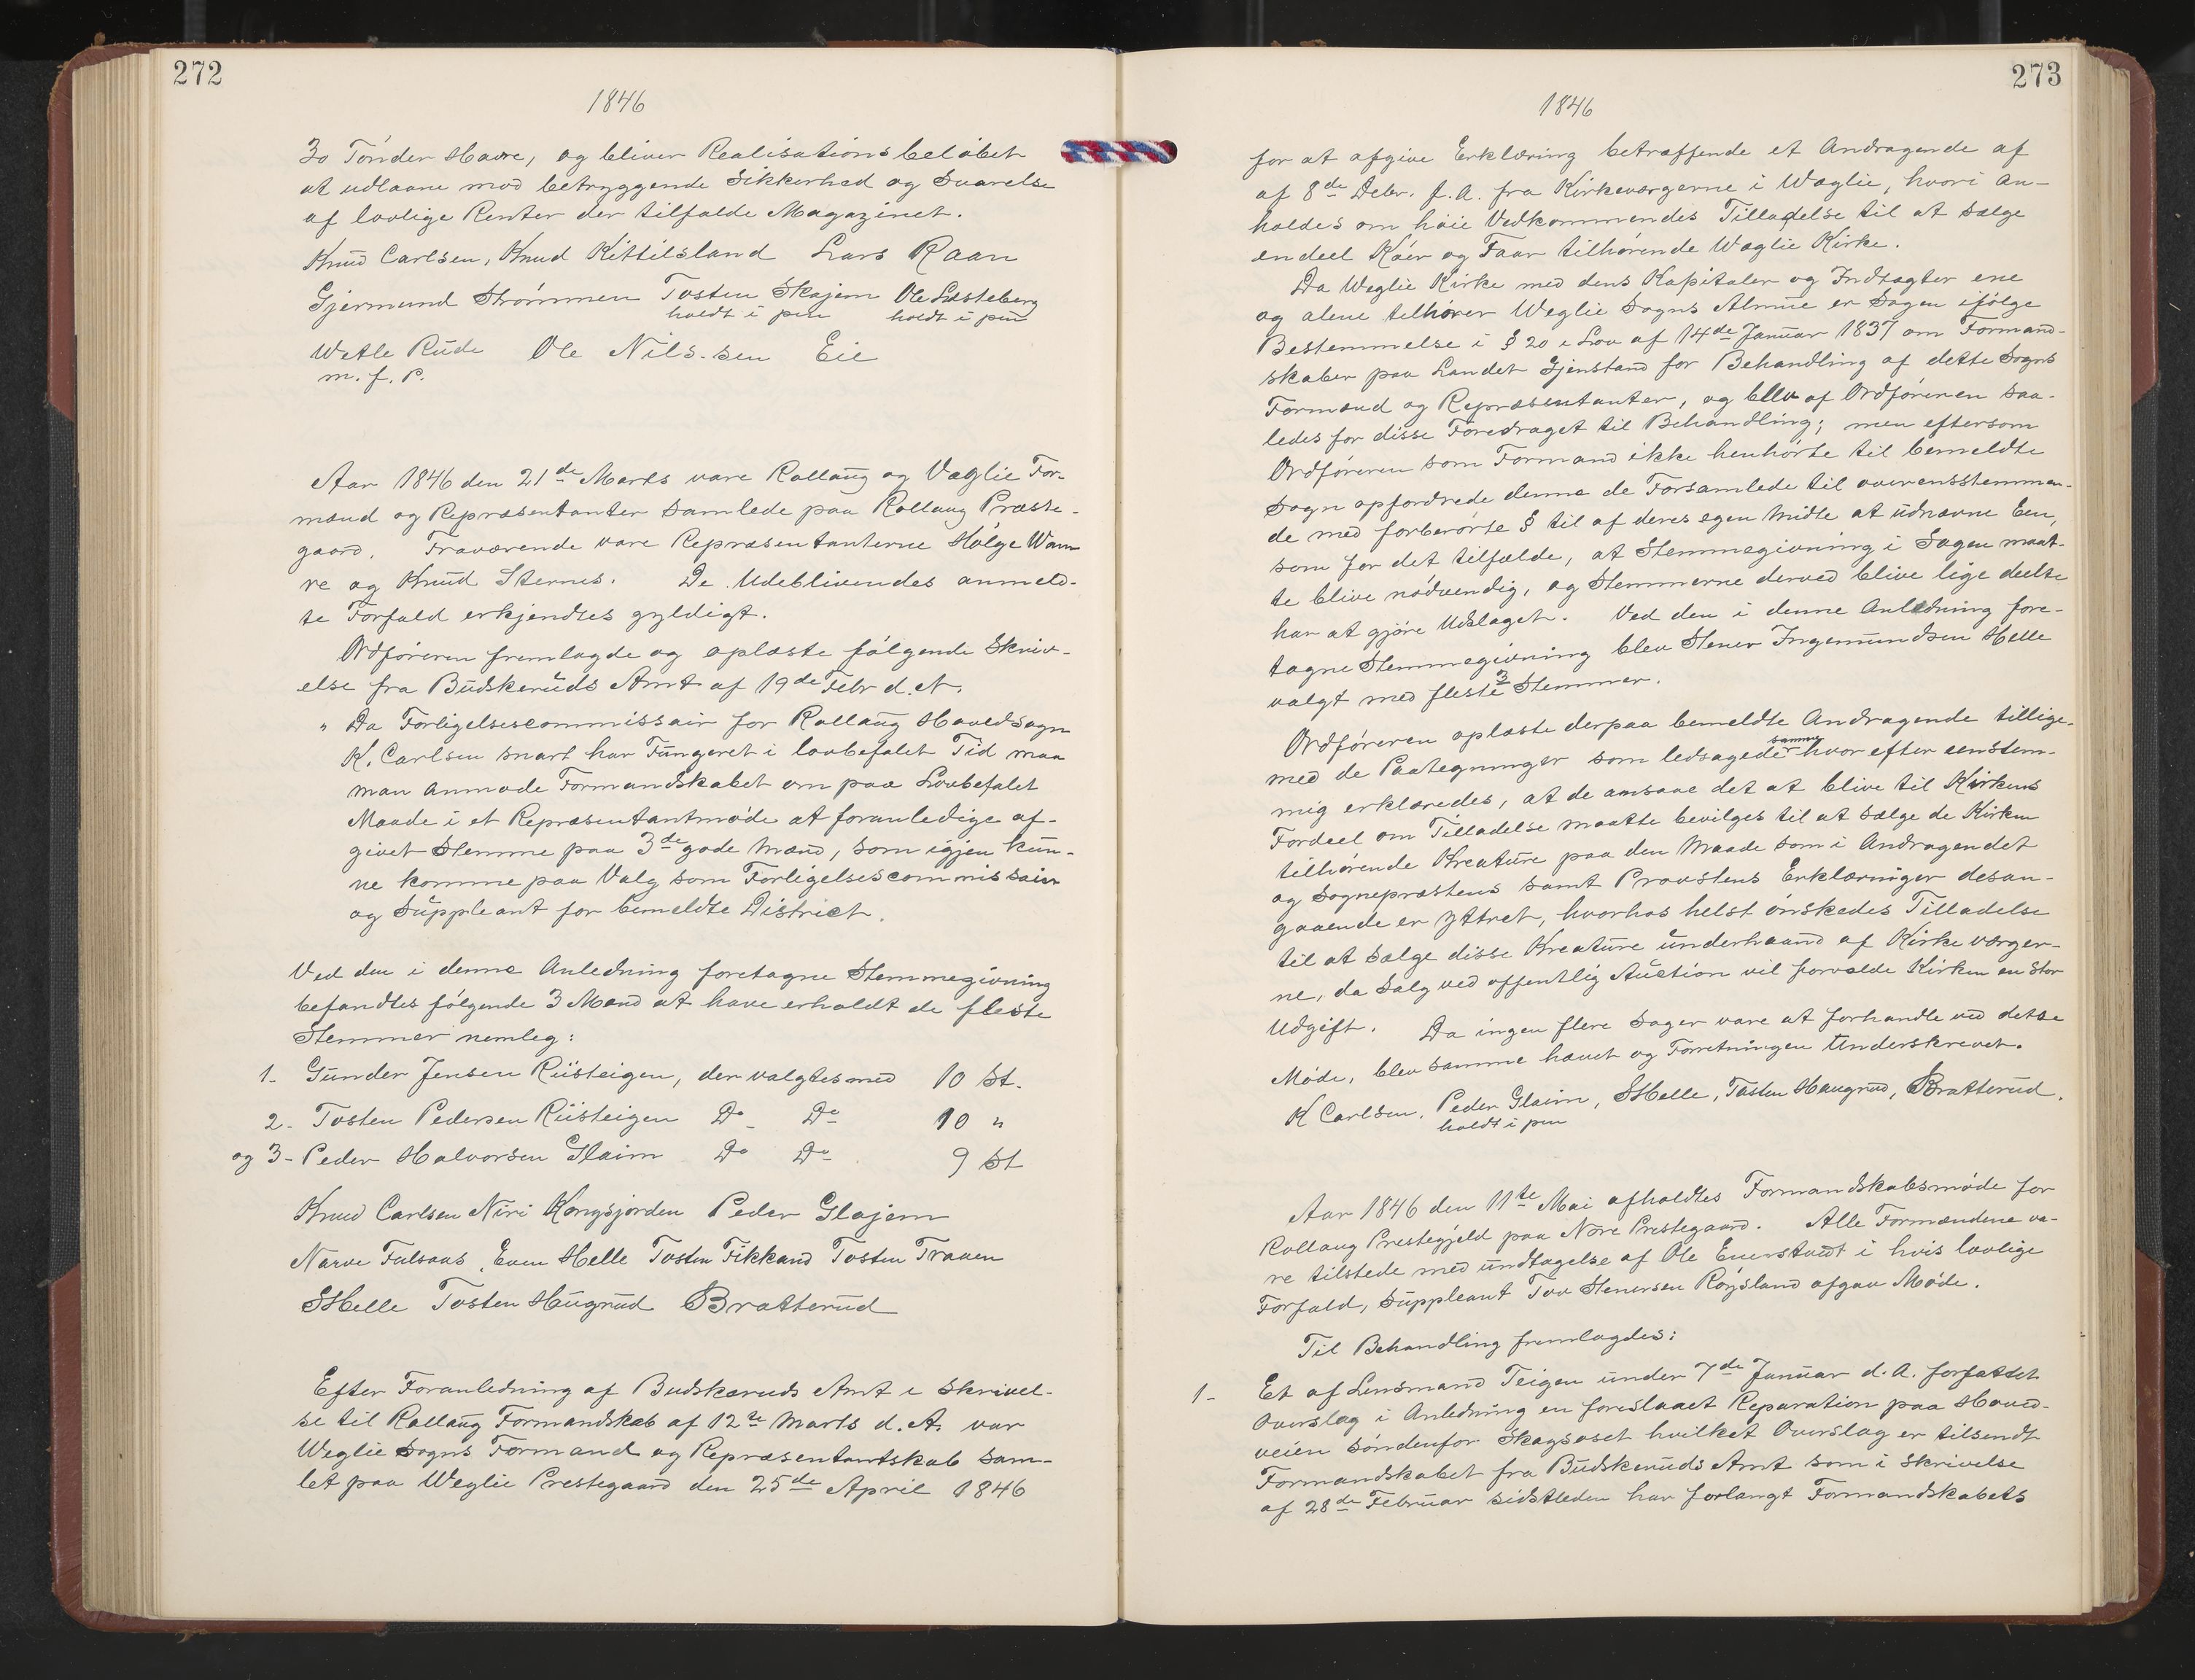 272
1846
30 Tønder Havre, og bliver Realisationsbeløbet
at udlaane mod betryggende Sikkerhed og Svarelse
af lovlige Renter der tilfalde Magazinet.
Knud Carlsen, Knud Kittilsland Lars Raan
Gjermund Strømmen Tosten Skajem Ole Listeberg
holdt i pen holdt i pen
Wetle Rude Ole Nils-sen Eie
m. f. P.
Aar 1846 den 21de Marts vare Rollaug og Væglie For-
mænd og Repræsentanter samlede paa Rollaug Præste-
gaard. Fraværende vare Repræsentanterne Hølge Wam
re og Knud Sternes. De Udeblivendes anmeld-
te Forfald erkjendtes gyldigt.
Ordføreren fremlagde og oplæste følgende Skriv-
else fra Budskeruds Amt af 19de Febr d. A.
" Da Forligelsescommissair for Rollaug Hovedsogn
K. Carlsen snart har Fungeret i lovbefalet Tid maa
man anmode Formandskabet om paa Lovbefalet
Maade i et Repræsentantmøde at foranledige af-
givet Stemme paa 3de gode Mænd, som igjen kun-
ne komme paa Valg som Forligelsescommissair
og Suppleant for bemeldte District.
Ved den i denne Anledning foretagne Stemmegivning
befandtes følgende 3 Mænd at have erholdt de fleste
Stemmer nemleg:
1- Gunder Jensen Riisteigen, der valgtes med 10 St.
2- Tosten Pedersen Riisteigen Do Do 10 "
og 3- Peder Halvorsen Glaim Do Do 9 St
Knud Carlsen Niri Kongsjorden Peder Glajem
Narve Fulsaas, Even Helle Tosten Fikkand Tosten Traaen
SHelle Tosten Hugrud Bratterud
Efter Foranledning af Budskeruds Amt i Skrivel-
se til Rollaug Formandskab af 12te Marts d. A. var
Weglie Sogns Formand og Repræsentantskab sam-
let paa Weglie Prestegaard den 25de April 1846
273
1846
for at afgive Erklæring betræffende et Andragende af
af 8de Debr. f. A. fra Kirkeværgerne i Wæglie, hvori an-
holdes om høie Vedkommendes Tilladelse til at sælge
endeel Køer og Faar tilhørende Wæglie Kirke.
Da Weglie Kirke med dens Kapitaler og Indtægter ene
og alene tilhører Weglie Sogns Almue er Sagen ifølge
Bestemmelse i § 20 i Lov af 14de Januar 1837 om Formand-
skaber paa Landet Gjenstand for Behandling af dette Sogns
Formænd og Repræsentanter, og blev af Ordføreren saa-
ledes for disse Foredraget til Behandling; men eftersom
Ordføreren som Formand ikke henhørte til bemeldte
Sogn opfordrede denne de Forsamlede til overensstemmen-
de med forberørte § til af deres egen Midte at udnævne Een,
som for det tilfælde, at Stemmegivning i Sagen maat-
te blive nødvendig, og Stemmerne derved blive lige deelte
har at gjøre Udslaget. Ved den i denne Anledning fore-
tagne Stemmegivning blev Stener Ingemundsen Helle
valgt med fleste 3 Stemmer.
Ordføreren oplæste derpaa bemeldte Andragende tillige-
med de Paategninger som ledsagede samme hvor efter eenstem-
mig erklæredes, at de ansaae det at blive til Kirkens
Fordeel om Tilladelse maatte bevilges til at sælge de Kirken
tilhørende Kreature paa den Maade som i Andragendet
og Sognepræstens samt Provstens Erklæringer desan-
gaaende er yttret, hvorhos helst ønskedes Tilladelse
til at sælge disse Kreature underhaand af Kirkeværger-
ne, da Salg ved offentlig Auction vil forvolde Kirken en stor
Udgift. Da ingen flere Sager vare at forhandle ved dette
Møde, blev samme hævet og Forretningen Underskrevet.
K Carlsen. Peder Glaim, SHelle, Tosten Haugrud, Bratterud.
holdt i pen
Aar 1846 den 11te Mai afholdtes Formandskabsmøde for
Rollaug Prestegjeld paa Nore Prestegaard. Alle Formændene va-
re tilstede med undtagelse af Ole Enerstvedt i hvis lovlige
Forfald, Suppleant Tov Stenersen Røysland afgav Møde.
Til Behandling fremlagdes:
1- Et af Lensmand Teigen under 7de Januar d. A. forfattet
Overslag i Anledning en foreslaaet Reparation paa Hoved-
veien søndenfor Skagsoset hvilket Overslag er tilsendt
Formandskabet fra Budskeruds Amt som i Skrivelse
af 28de Februar sidstleden har forlangt Formandskabets